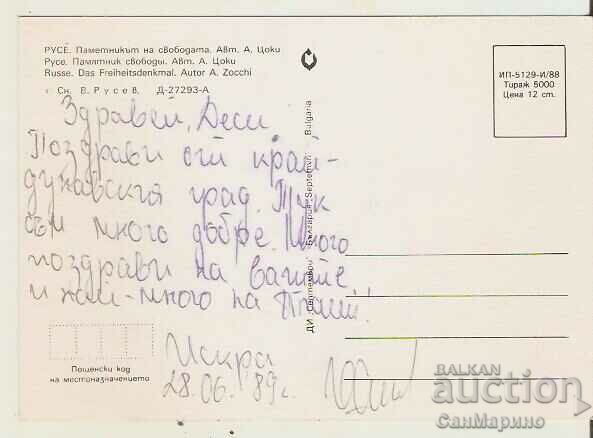 РУСЕ. Паметникът на свободата. Авт. А. Цоки
Русе. Памятник свободы. Авт. А. Цоки
Russe. Das Freiheitsdenkmal. Autor A. Zocchi
Сн. В. Русев. Д-27293-А
ИП-5129-И/88
Тираж 5000
Цена 12 ст.
Здравей, Деси,
Поздрави от край-
дунавския град. Тук
съм много добре. Много
поздрави на вашите
и най-много на
Искра
28.06.89г.
ДИ „Септември“ България Septemvri Bulgaria
Пощенски код
на местоназначението
BALKAN
auction
СанМарино